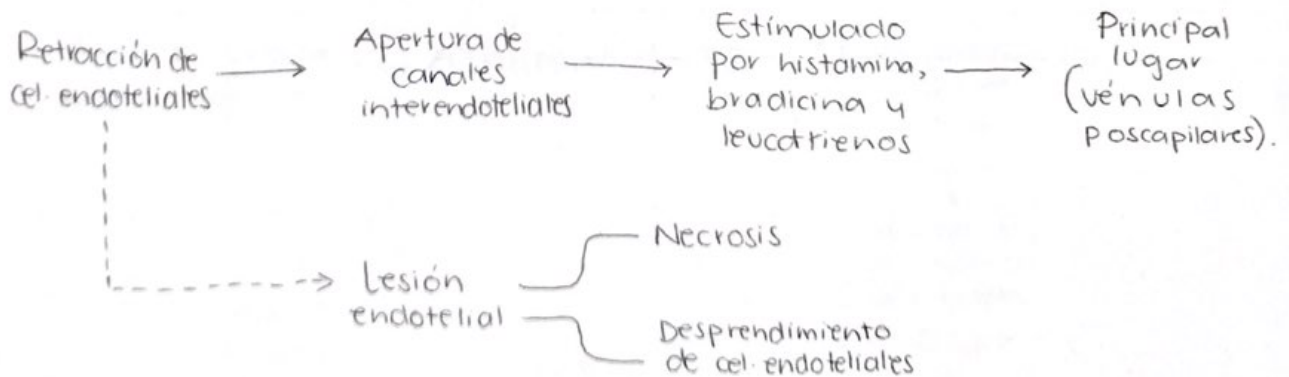 Retracción de
cel. endoteliales
Apertura de
canales
interendoteliales
Estimulado
por histamina,
bradicina y
leucotrienos
Principal
lugar
(vénulas
poscapilares).
Lesión
endotelial
Necrosis
Desprendimiento
de cel. endoteliales